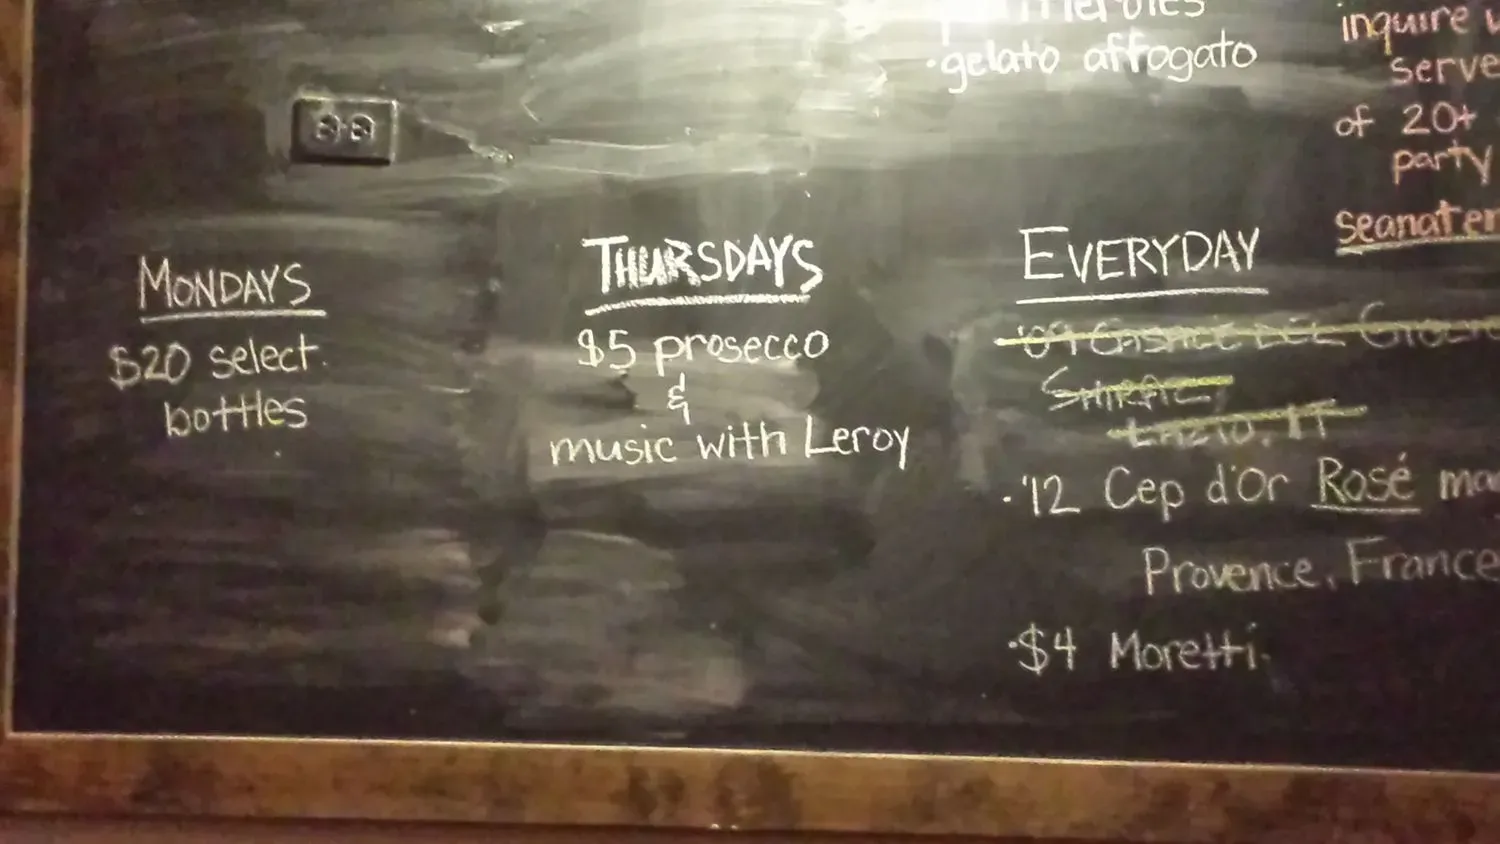 gelato affogato
inquire
serve
of 20+
party
MONDAYS
$20 select
bottles
THURSDAYS
$5 prosecco
&
music with Leroy
EVERYDAY
SHIRAZ,
LAZIO, IT
· '12 Cep d'Or Rosé
Provence, France
· $4 Moretti